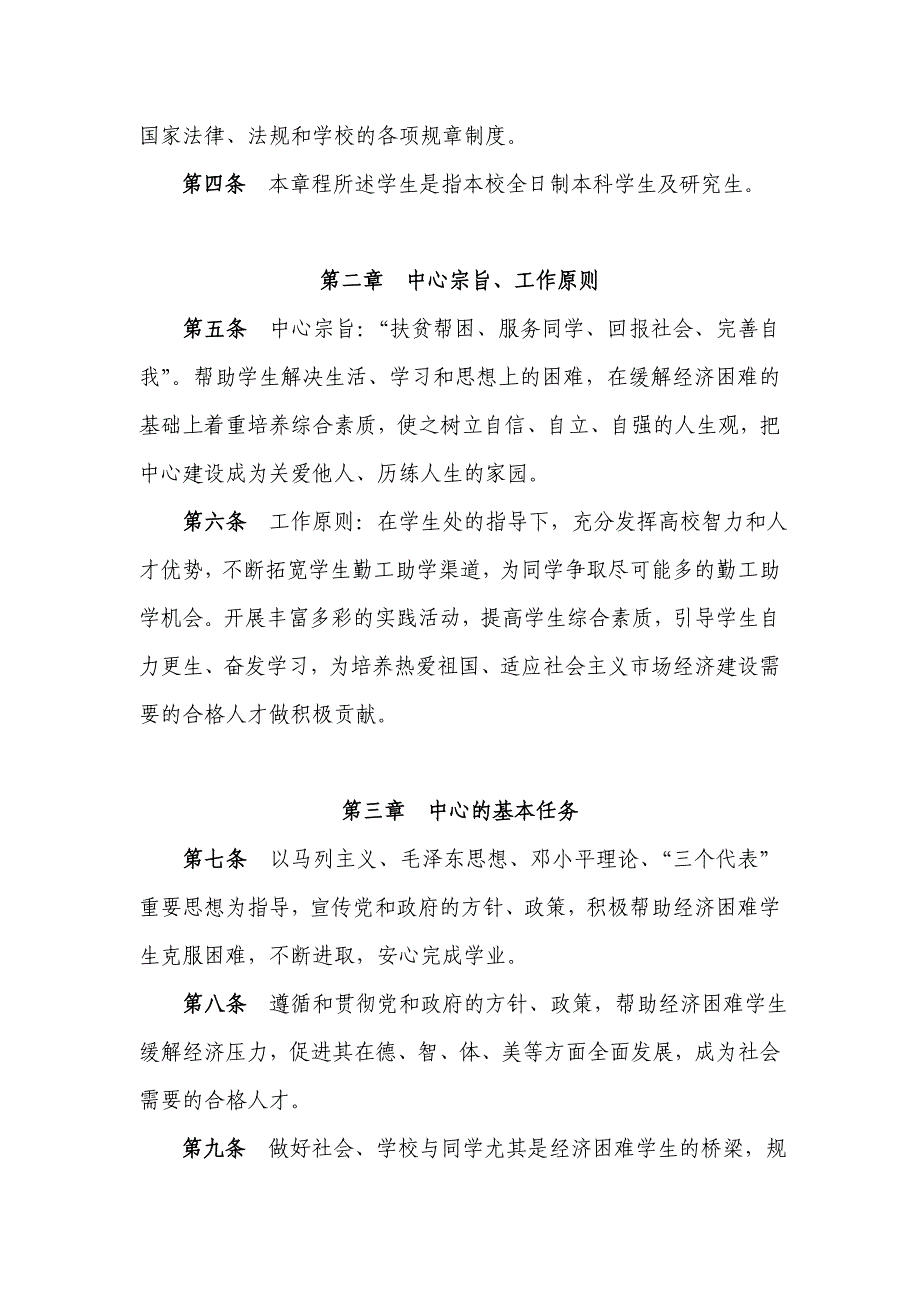 国家法律、法规和学校的各项规章制度。
第四条　本章程所述学生是指本校全日制本科学生及研究生。
第二章　中心宗旨、工作原则
第五条　中心宗旨：“扶贫帮困、服务同学、回报社会、完善自
我”。帮助学生解决生活、学习和思想上的困难，在缓解经济困难的
基础上着重培养综合素质，使之树立自信、自立、自强的人生观，把
中心建设成为关爱他人、历练人生的家园。
第六条　工作原则：在学生处的指导下，充分发挥高校智力和人
才优势，不断拓宽学生勤工助学渠道，为同学争取尽可能多的勤工助
学机会。开展丰富多彩的实践活动，提高学生综合素质，引导学生自
力更生、奋发学习，为培养热爱祖国、适应社会主义市场经济建设需
要的合格人才做积极贡献。
第三章　中心的基本任务
第七条　以马列主义、毛泽东思想、邓小平理论、“三个代表”
重要思想为指导，宣传党和政府的方针、政策，积极帮助经济困难学
生克服困难，不断进取，安心完成学业。
第八条　遵循和贯彻党和政府的方针、政策，帮助经济困难学生
缓解经济压力，促进其在德、智、体、美等方面全面发展，成为社会
需要的合格人才。
第九条　做好社会、学校与同学尤其是经济困难学生的桥梁，规